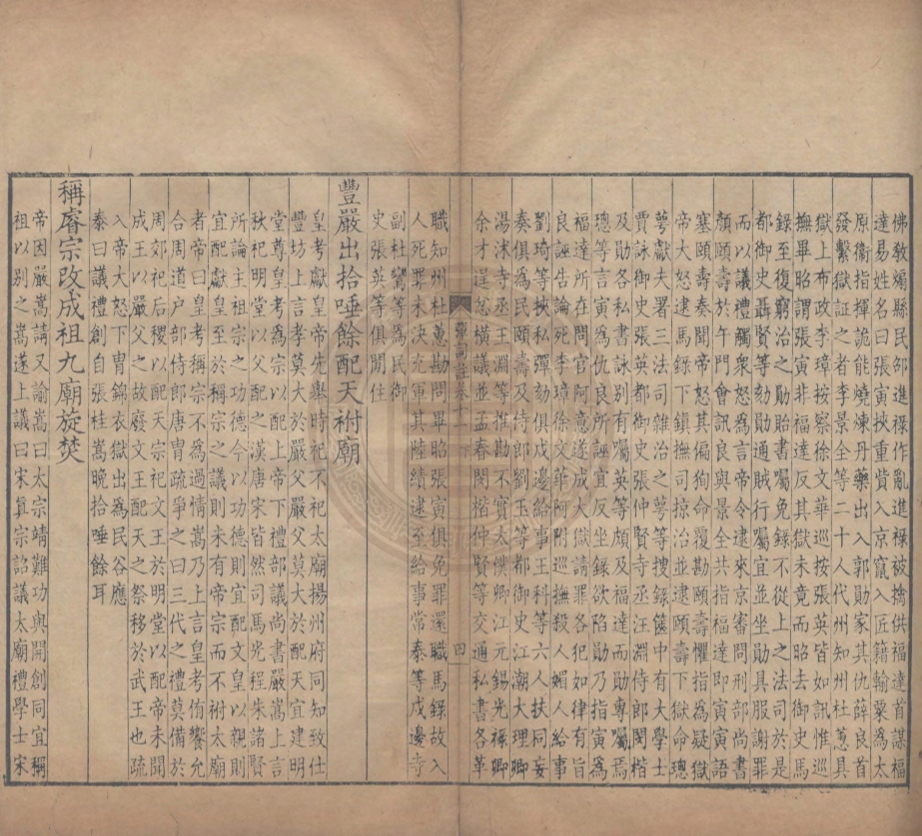 佛教煽縣民邵進祿作亂進祿被擒供福達首謀福
達易姓名曰張寅挾重貲入京竄入匠籍輸粟爲太
原衛指揮詭能燒煉丹藥出入郭勛家其仇薛良首
發繫獄証之者李景全等二十人代州知州杜蕙具
獄上布政李璋按察徐文華巡按張英皆如訊惟巡
撫畢昭謂張寅非福達反其獄未竟而昭去御史馬
錄至復窮治之勛貽書囑免錄不從上之法司於是
都御史聶賢等劾勛通賊行囑宜並坐勛具服謝罪
而以議禮觸衆怒爲言帝令逮來京審達問刑部尚書
顏頤壽等於午門會訊良與景全共指福達即寅語
塞頤壽奏聞帝怒其偏狥命覆勘頤壽懼指爲疑獄
帝大怒逮馬錄下鎮撫司掠治並逮頤壽下獄命璁
萼獻夫署三法司雜治之萼等搜錄篋中有大學士
賈詠御史張英都御史張仲賢寺丞汪淵侍郎閔楷
及勛各私書詠別有囑英等頗及福達而勛專囑焉
璁等言寅爲仇良所誣宜反坐錄欲陷勛乃指寅爲
福達所在問官阿意遂成大獄請罪各犯如律有旨
良誣告論死李璋徐文華阿附巡撫殺人媚人給事
劉琦等挾私彈劾俱戍邊給事王科等六人扶同妄
奏俱爲民頤壽及侍郎劉玉等都御史江潮大理卿
湯沐寺丞王淵等推勘不實太僕卿江元錫光祿卿
余才逞忿橫議並孟春閔楷仲賢等交通私書各革
職知州杜蕙勘問畢昭張寅俱免罪還職馬錄故入
人死罪未決充軍其陸續逮至給事常泰等戍邊寺
副杜鸞等爲民御
史張英等俱閒住
豐嚴出拾唾餘配天祔廟
皇考獻皇帝先舉時祀不祀太廟揚州府同知致仕
豐坊上言孝莫大於嚴父嚴父莫大於配天宜建明
堂尊皇考爲宗以配上帝下禮部議尚書嚴嵩上言
秋祀明堂以父配之漢唐宋皆然司馬光程朱諸賢
所論主祖宗之功德今以功德則宜配文皇以親則
宜配獻皇至於稱宗之議則未有帝宗而不祔太廟
者帝曰皇考稱宗不爲過情嵩乃上言皇考侑饗允
合周道戶部侍郎唐冑疏爭之曰三代之禮莫備於
周郊祀后稷以配天宗祀文王於明堂以配帝未聞
成王以嚴父之故廢文王配天之祭移於武王也疏
入帝大怒下冑錦衣獄出爲民谷應
泰曰議禮創自張桂嵩晚拾唾餘耳
稱睿宗改成祖九廟旋焚
帝因嚴嵩請又諭嵩曰太宗靖難功與開創同宜稱
祖以別之嵩遂上議曰宋眞宗詔議太廟禮學士宋
四